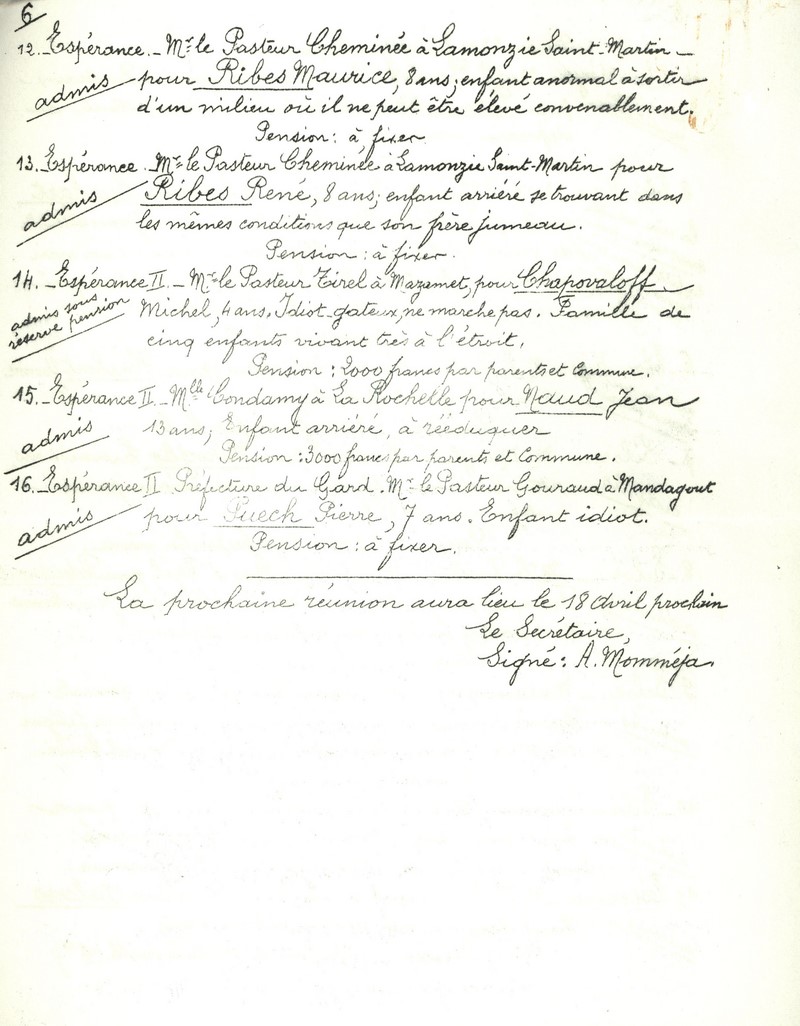 6
12. _Espérance. _ Mr le Pasteur Cheminée à Lamonzie Saint-Martin _
admis
pour Ribes Maurice, 8 ans; enfant anormal à sortir
d'un milieu où il ne peut être élevé convenablement.
Pension: à fixer
13. _Espérance. Mr le Pasteur Cheminée à Lamonzie Saint-Martin pour
admis
Ribes René, 8 ans; enfant arriéré se trouvant dans
les mêmes conditions que son frère jumeau.
Pension: à fixer.
14. _Espérance II. _ Mr le Pasteur Tirel à Mazamet, pour Chapovaloff _
admis sous
réserve pension
Michel, 4 ans. Idiot-gateux, ne marche pas. Famille de
cinq enfants vivant très à l'étroit.
Pension: 2000 francs par parents et Commune.
15. _Espérance II. _ Mlle Condamy à La Rochelle pour Naud Jean
admis
13 ans; Enfant arriéré, à rééduquer
Pension: 3000 francs par parents et Commune.
16. _Espérance II Préfecture du Gard. Mr le Pasteur Gouraud à Mandagout
admis
pour Puech Pierre, 7 ans. Enfant idiot.
Pension: à fixer.
La prochaine réunion aura lieu le 18 Avril prochain
Le Secrétaire,
Signé: A. Momméja.